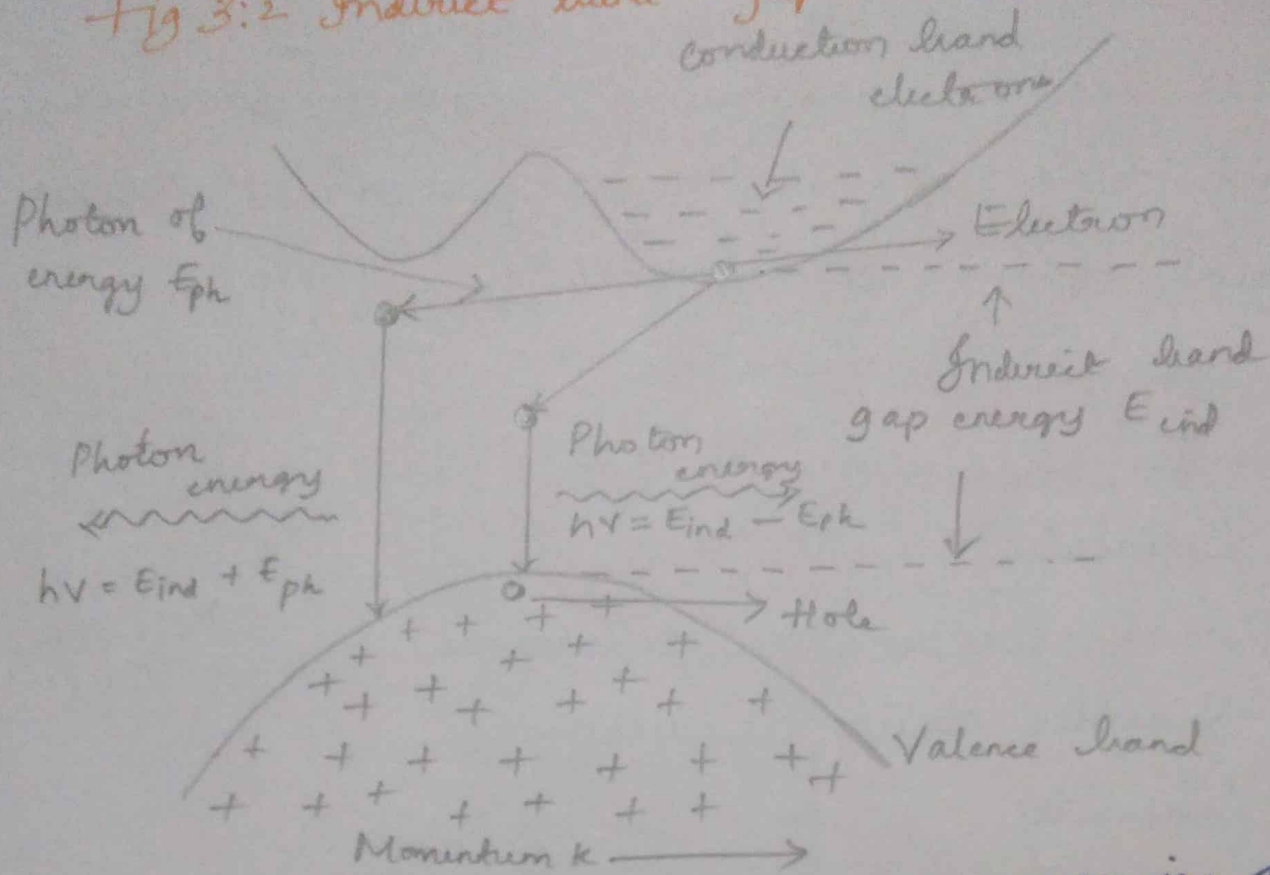 Fig 3:2 Indirect band
Conduction band
electrons
Photon of
energy Eph
Electron
Indirect band
gap energy Eind
Photon
energy
hν = Eind + Eph
Photon
energy
hν = Eind - Eph
Hole
Valence band
Momentum k